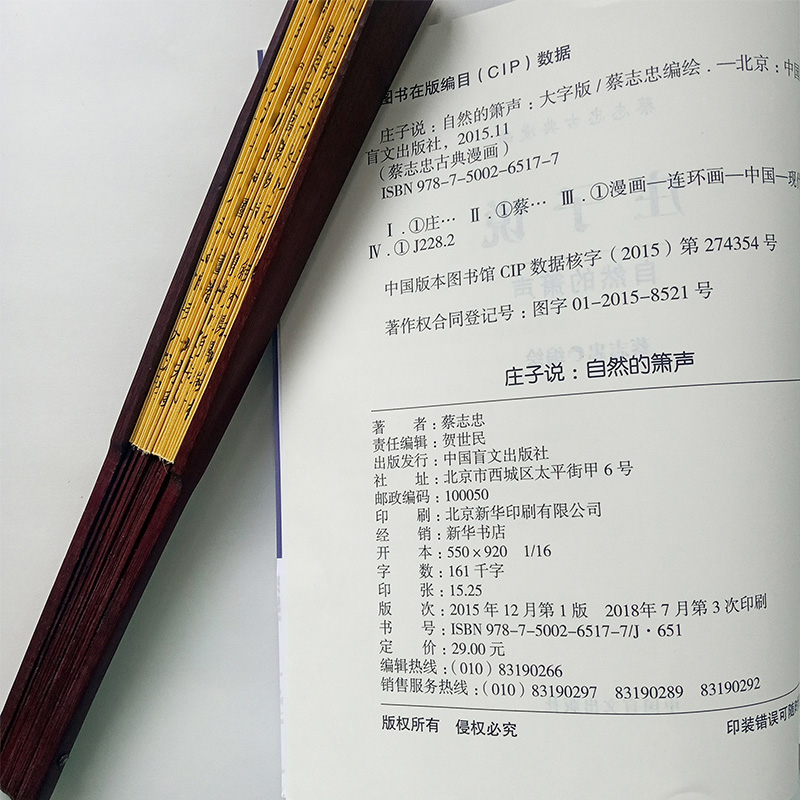 图书在版编目(CIP)数据
庄子说:自然的箫声:大字版/蔡志忠编绘.—北京:中国
盲文出版社,2015.11
(蔡志忠古典漫画)
ISBN 978-7-5002-6517-7
Ⅰ.①庄… Ⅱ.①蔡… Ⅲ.①漫画—连环画—中国—现代
Ⅳ.①J228.2
中国版本图书馆 CIP 数据核字(2015)第 274354号
著作权合同登记号:图字 01-2015-8521 号
庄子说:自然的箫声
著 者:蔡志忠
责任编辑:贺世民
出版发行:中国盲文出版社
社 址:北京市西城区太平街甲 6 号
邮政编码:100050
印 刷:北京新华印刷有限公司
经 销:新华书店
开 本:550×920 1/16
字 数:161 千字
印 张:15.25
版 次:2015 年 12 月第 1 版 2018年 7 月第 3 次印刷
书 号:ISBN 978-7-5002-6517-7/J·651
定 价:29.00 元
编辑热线:(010)83190266
销售服务热线:(010)83190297 83190289 83190292
版权所有 侵权必究
印装错误可随